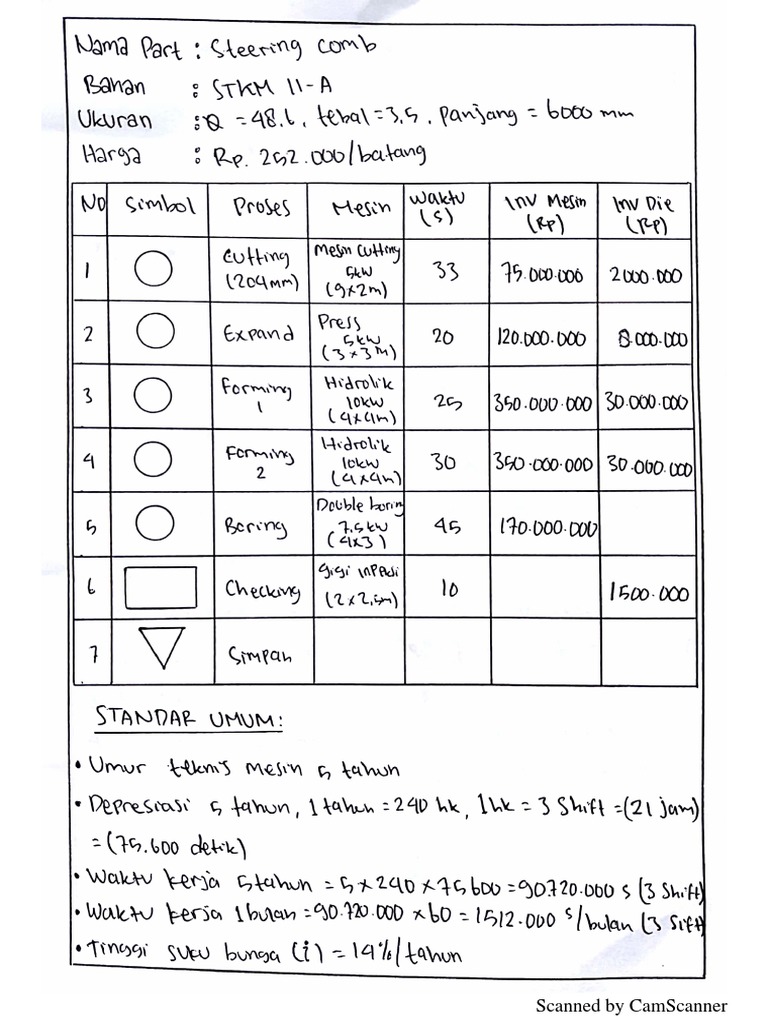 Nama Part : Steering comb
Bahan : STKM 11-A
Ukuran : Ø = 48.6, tebal = 3,5, panjang = 6000 mm
Harga : Rp. 252.000/batang
No Simbol Proses Mesin Waktu (s) Inv Mesin (Rp) Inv Die (Rp)
1 Cutting (204mm) Mesin Cutting 5kw (9x2m) 33 75.000.000 2000.000
2 Expand Press 5kw (3x3m) 20 120.000.000 8.000.000
3 Forming 1 Hidrolik 10kw (4x4m) 25 350.000.000 30.000.000
4 Forming 2 Hidrolik 10kw (4x4m) 30 350.000.000 30.000.000
5 Boring Double boring 7,5kw (4x3) 45 170.000.000
6 Checking (2x2,5m) 10 1500.000
7 Simpan
STANDAR UMUM:
• Umur teknis mesin 5 tahun
• Depresiasi 5 tahun, 1 tahun = 240 hk, 1 hk = 3 Shift = (21 jam)
= (75.600 detik)
• Waktu kerja 5 tahun = 5 x 240 x 75600 = 90720.000 s (3 Shift)
• Waktu kerja 1 bulan = 90.720.000 x 60 = 1512.000 s/bulan (3 Sift)
• Tinggi suku bunga (i) = 14%/tahun
Scanned by CamScanner